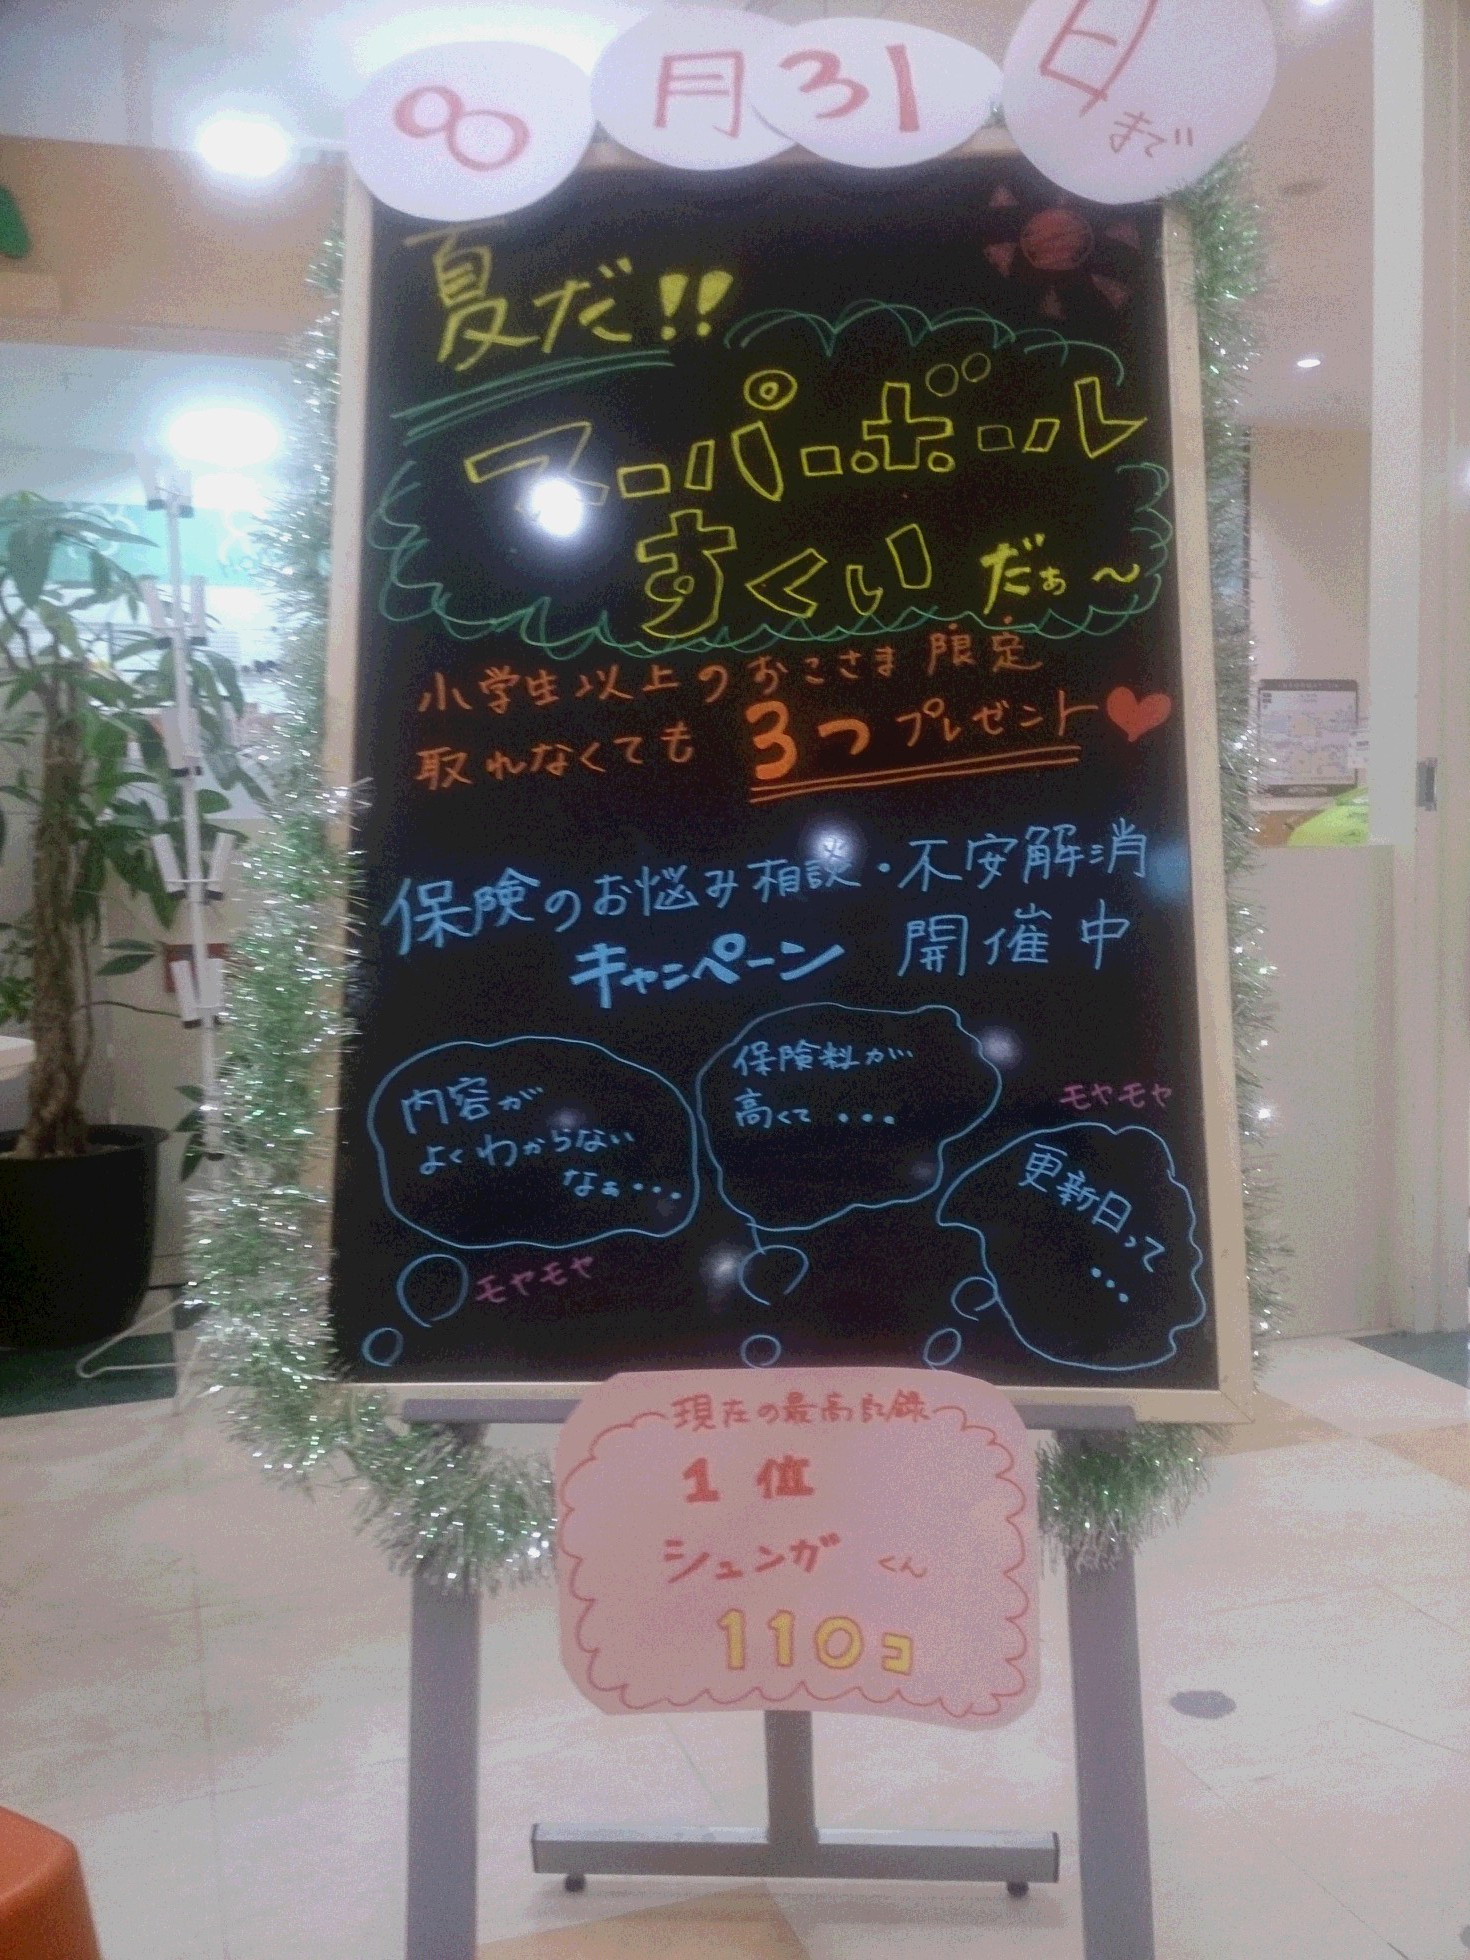 8月31日まで
夏だ!!
スーパーボール
すくいだぁ〜
小学生以上のおこさま限定
取れなくても3つプレゼント
保険のお悩み相談・不安解消
キャンペーン 開催中
内容が
よくわからない
なぁ・・・
モヤモヤ
保険料が
高くて・・・
モヤモヤ
更新日って
・・・
現在の最高記録
1位
シュンガくん
110コ